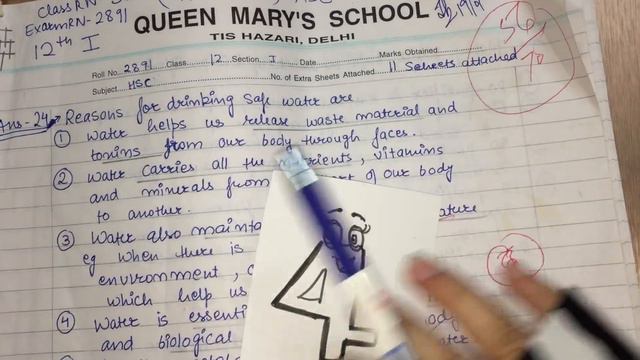 Class RN-
Exam RN-2891
12th I
#
QUEEN MARY'S SCHOOL
TIS HAZARI, DELHI
Roll No. 2891 Class 12 Section I Date Marks Obtained
Subject HSC No. of Extra Sheets Attached 11 Scheets attached
56
70
Ans-24 Reasons for drinking safe water are
① Water helps us release waste material and
toxins from our body through faces.
② Water carries all the nutrients, vitamins
and minerals from of our body
to another.
③ Water also mainta ature
eg when there is
environment,
which help us
④ Water is essenti body
and biological water
4